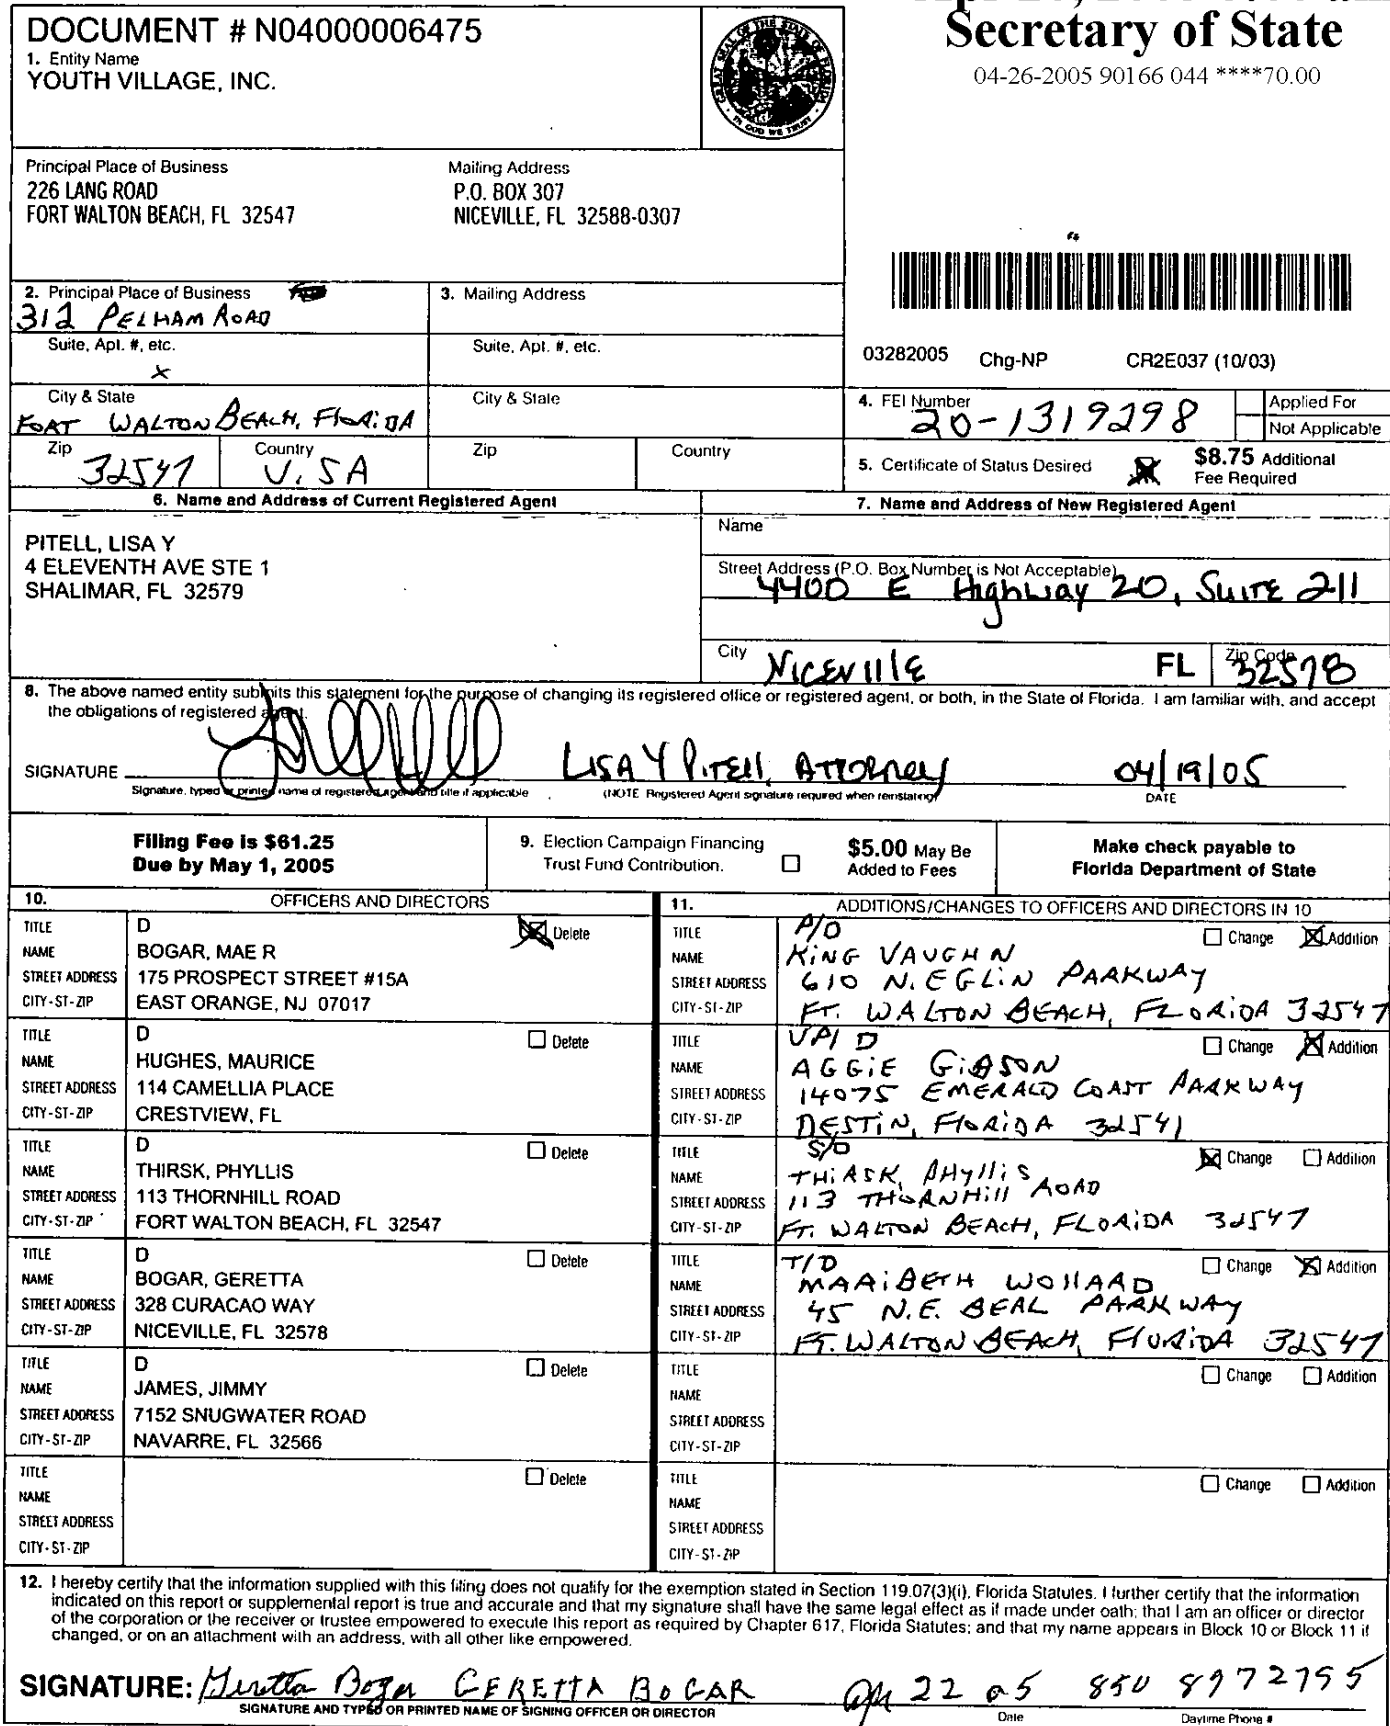 Secretary of State
04-26-2005 90166 044 ****70.00
DOCUMENT # N04000006475
1. Entity Name
YOUTH VILLAGE, INC.
GREAT SEAL OF THE STATE OF FLORIDA
IN GOD WE TRUST
Principal Place of Business
226 LANG ROAD
FORT WALTON BEACH, FL 32547
Mailing Address
P.O. BOX 307
NICEVILLE, FL 32588-0307
2. Principal Place of Business
312 PELHAM ROAD
3. Mailing Address
Suite, Apt. #, etc.
x
Suite, Apt. #, etc.
City & State
FORT WALTON BEACH, FLORIDA
City & State
Zip
32547
Country
U.SA
Zip
Country
03282005 Chg-NP CR2E037 (10/03)
4. FEI Number
20-1319298
Applied For
Not Applicable
5. Certificate of Status Desired
$8.75 Additional
Fee Required
6. Name and Address of Current Registered Agent
PITELL, LISA Y
4 ELEVENTH AVE STE 1
SHALIMAR, FL 32579
7. Name and Address of New Registered Agent
Name
Street Address (P.O. Box Number is Not Acceptable)
4400 E Highway 20, SUITE 211
City
NICEVILLE
FL
Zip Code
32578
8. The above named entity submits this statement for the purpose of changing its registered office or registered agent, or both, in the State of Florida. I am familiar with, and accept
the obligations of registered agent.
SIGNATURE
LISA Y PITELL, ATTORNEY
04/19/05
Signature, typed or printed name of registered agent and title if applicable
(NOTE Registered Agent signature required when reinstating)
DATE
Filing Fee is $61.25
Due by May 1, 2005
9. Election Campaign Financing
Trust Fund Contribution.
$5.00 May Be
Added to Fees
Make check payable to
Florida Department of State
10. OFFICERS AND DIRECTORS
TITLE D Delete
NAME BOGAR, MAE R
STREET ADDRESS 175 PROSPECT STREET #15A
CITY-ST-ZIP EAST ORANGE, NJ 07017
TITLE D Delete
NAME HUGHES, MAURICE
STREET ADDRESS 114 CAMELLIA PLACE
CITY-ST-ZIP CRESTVIEW, FL
TITLE D Delete
NAME THIRSK, PHYLLIS
STREET ADDRESS 113 THORNHILL ROAD
CITY-ST-ZIP FORT WALTON BEACH, FL 32547
TITLE D Delete
NAME BOGAR, GERETTA
STREET ADDRESS 328 CURACAO WAY
CITY-ST-ZIP NICEVILLE, FL 32578
TITLE D Delete
NAME JAMES, JIMMY
STREET ADDRESS 7152 SNUGWATER ROAD
CITY-ST-ZIP NAVARRE, FL 32566
TITLE Delete
NAME
STREET ADDRESS
CITY-ST-ZIP
11. ADDITIONS/CHANGES TO OFFICERS AND DIRECTORS IN 10
TITLE P/D Change Addition
NAME KING VAUGHN
STREET ADDRESS 610 N. EGLIN PARKWAY
CITY-ST-ZIP FT. WALTON BEACH, FLORIDA 32547
TITLE VP/D Change Addition
NAME AGGIE GIBSON
STREET ADDRESS 14075 EMERALD COAST PARKWAY
CITY-ST-ZIP DESTIN, FLORIDA 32541
TITLE S/D Change Addition
NAME THIRSK, PHYLLIS
STREET ADDRESS 113 THORNHILL ROAD
CITY-ST-ZIP FT. WALTON BEACH, FLORIDA 32547
TITLE T/D Change Addition
NAME MARIBETH WOLLARD
STREET ADDRESS 45 N.E. BEAL PARKWAY
CITY-ST-ZIP FT. WALTON BEACH, FLORIDA 32547
TITLE Change Addition
NAME
STREET ADDRESS
CITY-ST-ZIP
TITLE Change Addition
NAME
STREET ADDRESS
CITY-ST-ZIP
12. I hereby certify that the information supplied with this filing does not qualify for the exemption stated in Section 119.07(3)(i), Florida Statutes. I further certify that the information
indicated on this report or supplemental report is true and accurate and that my signature shall have the same legal effect as if made under oath; that I am an officer or director
of the corporation or the receiver or trustee empowered to execute this report as required by Chapter 617, Florida Statutes; and that my name appears in Block 10 or Block 11 if
changed, or on an attachment with an address, with all other like empowered.
SIGNATURE: Geretta Bogar GERETTA BOGAR Apr 22 05 850 8972795
SIGNATURE AND TYPED OR PRINTED NAME OF SIGNING OFFICER OR DIRECTOR
Date
Daytime Phone #